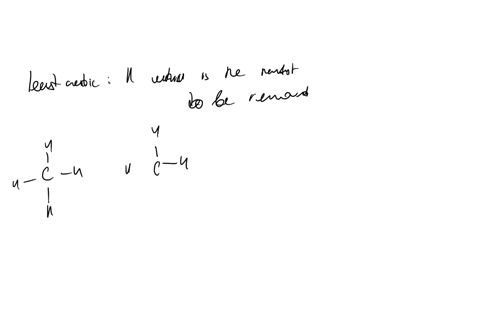 Least acidic : H which is the hardest
to be removed
H
H
H - C - H v C - H
H